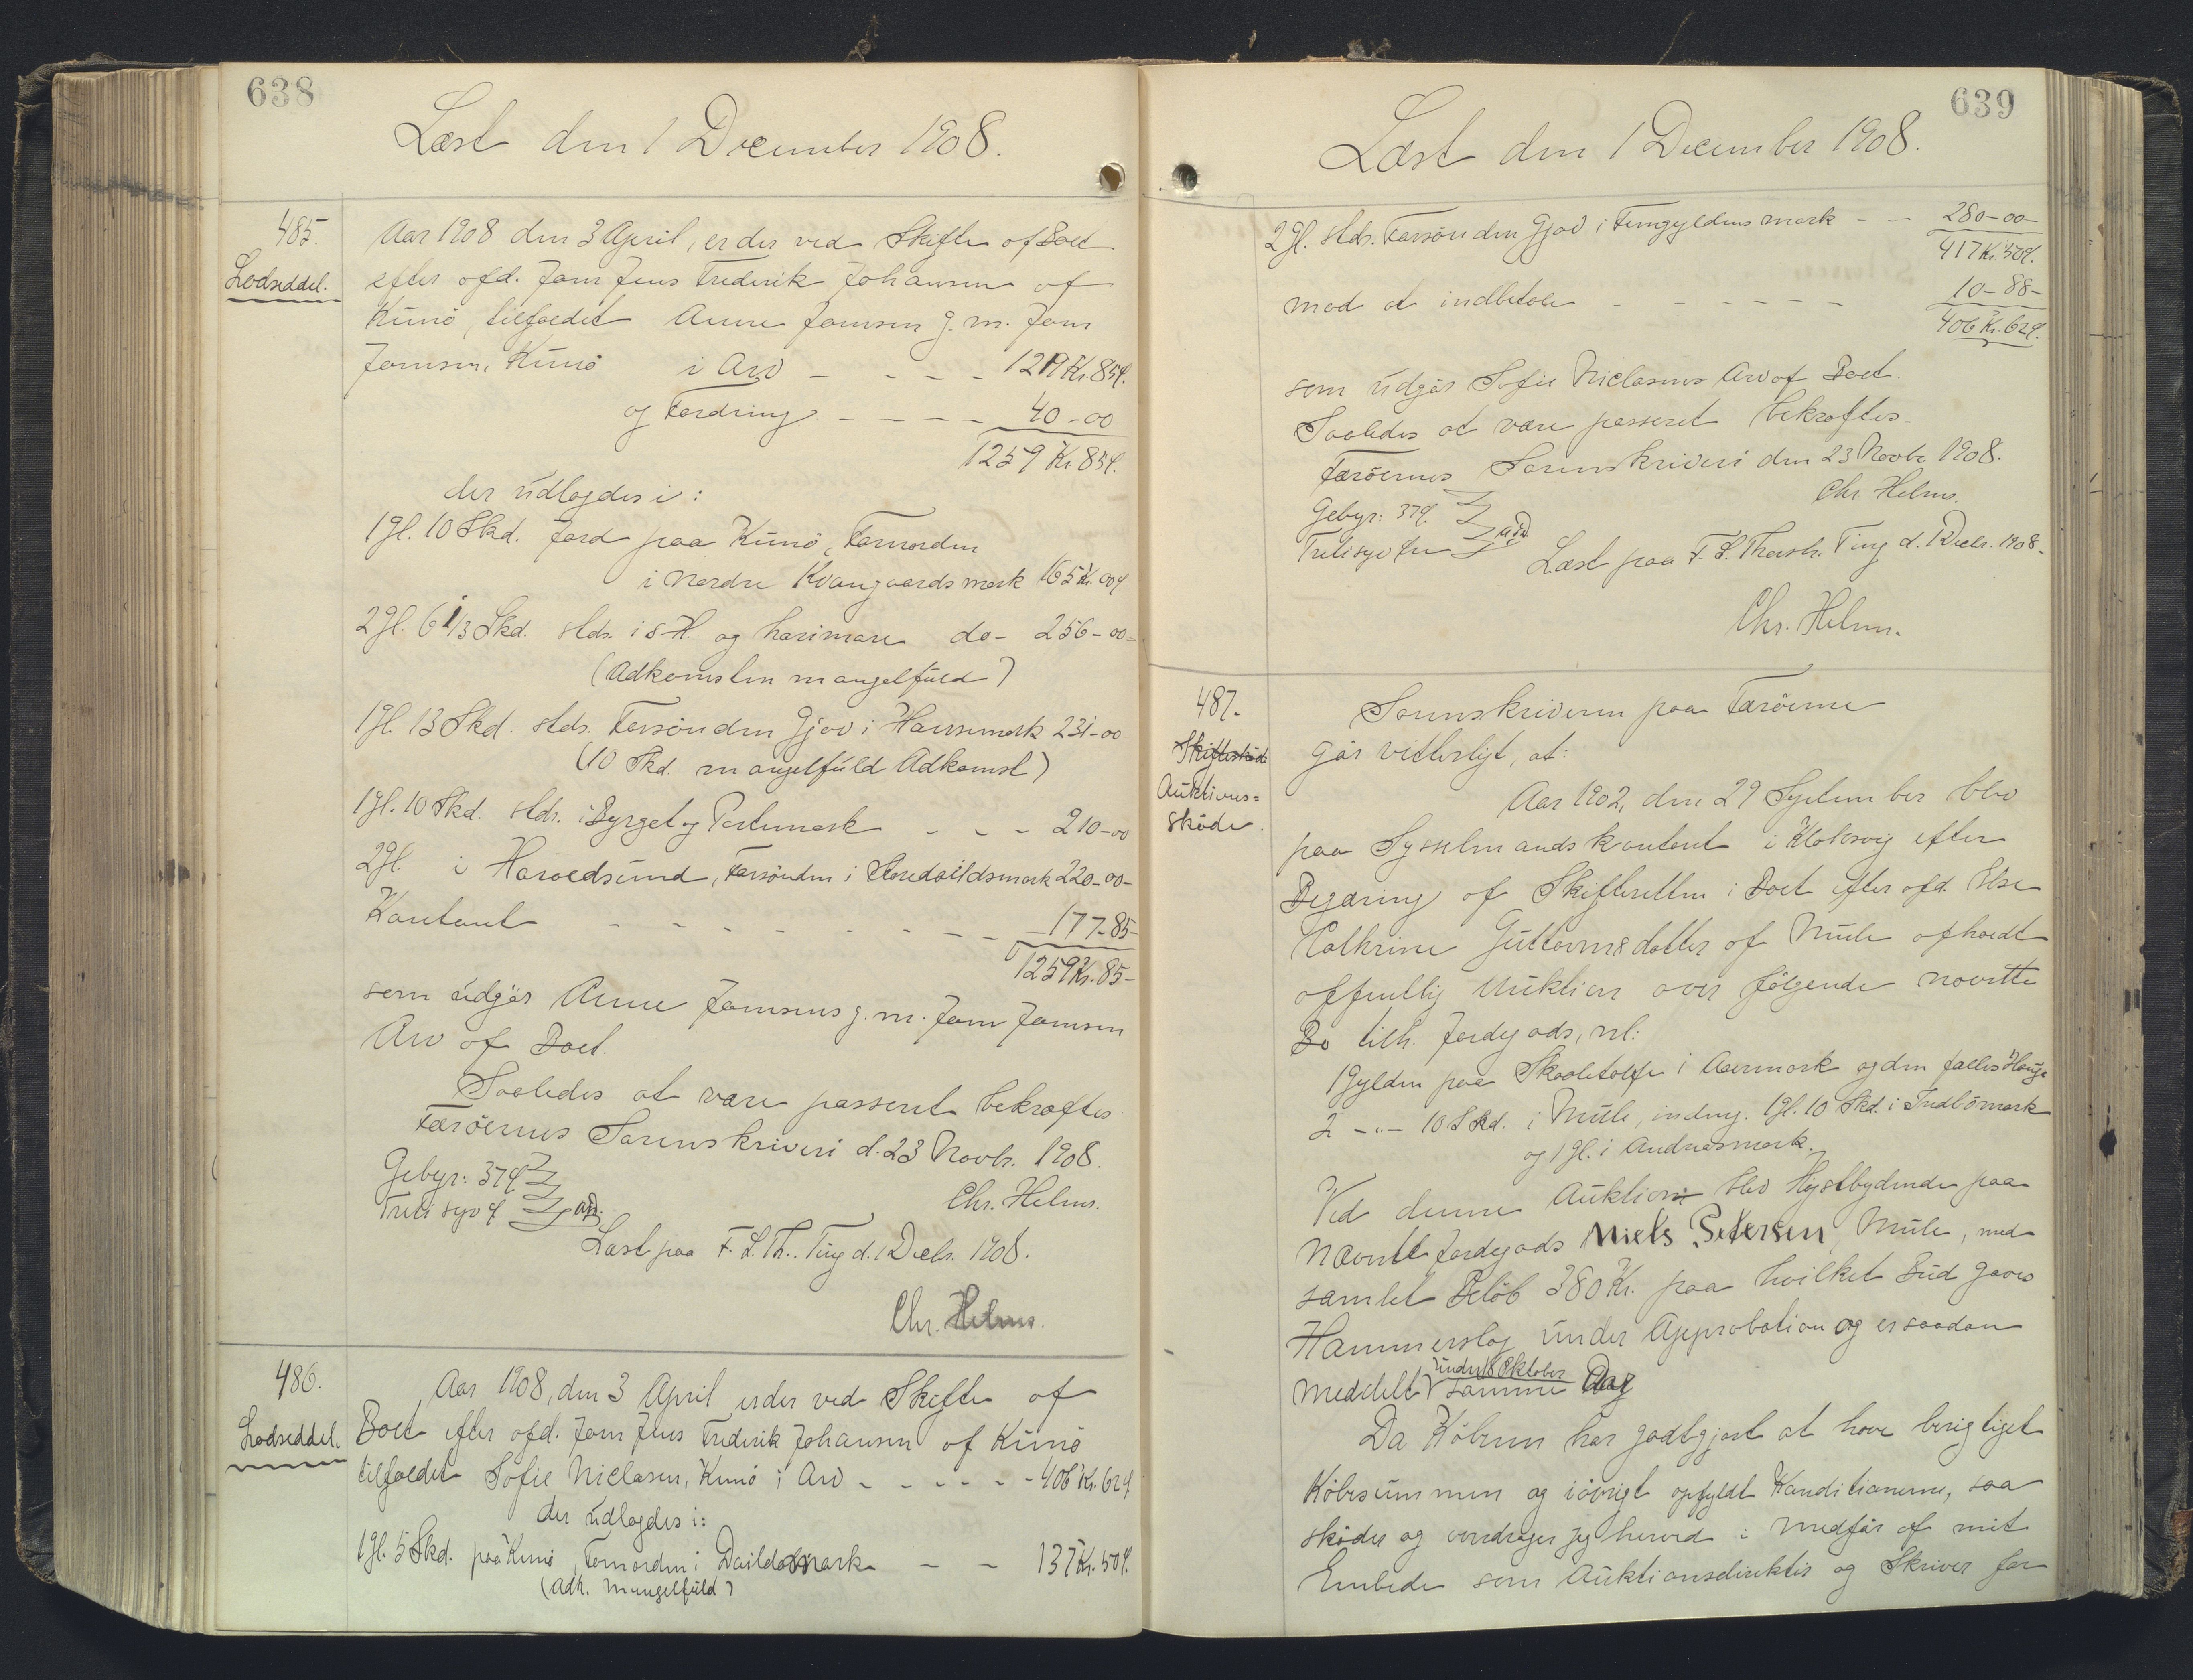 638
Læst den 1 December 1908.
485.
Lodseddel.
Aar 1908 den 3 April, er der ved Skifte af Boet
efter afd. Joen Jens Frederik Johansen af
Kunö, tilfaldet Anne Joensen g. m. Joen
Joensen, Kunö i Arv - - - - 1219 Kr. 85 Ø.
og Fordring - - - - 40-00
1259 Kr 85 Ø.
der udlagdes i:
1 Gl. 10 Skd. Jord paa Kunö, Fornorden
i Nordre Kvangaards mark 165 Kr. 00 Ø
2 Gl. 6 1/3 Skd. stds. i S. H. og harimare do - 256-00-
(Adkomsten mangelfuld)
1 Gl. 13 Skd. stds. Forsönden Gjov i Hansemark 231-00
(10 Skd. mangelfuld Adkomst)
1 Gl. 10 Skd. stds. i Byrget og Portemark - - - 210-00
2 Gl. i Haraldsund, Forsönden i 220-00-
Kontant - - - - - - - - - 177-85-
1259 Kr. 85-
som udgör Anne Joensens g. m. Joen Joensen
Arv af Boet.
Saaledes at være passeret bekræftes
Færöernes Sorenskriveri d. 23 Novbr. 1908.
Gebyr: 37 Ø
Treti syv Ø
Chr. Helms.
Læst paa F. S. Th. Ting d. 1 Decbr. 1908.
Chr. Helms.
486.
Lodseddel.
Aar 1908, den 3 April er der ved Skifte af
Boet efter afd. Joen Jens Frederik Johansen af Kunö
tilfaldet Sofie Niclasen, Kunö i Arv - - - - - 406 Kr. 62 Ø
der udlagdes i:
1 Gl. 5 Skd. paa Kunö, Fornorden i Dailda mark - - 137 Kr. 50 Ø.
(Adk. mangelfuld)
639
Læst den 1 December 1908.
2 Gl. stds. Forsönden Gjov i Femgyldens mark - - 280-00-
417 Kr. 50 Ø.
mod at indbetale - - - - - - 10-88-
406 Kr. 62 Ø.
som udgör Sofie Niclasens Arv af Boet.
Saaledes at være passeret bekræftes.
Færöernes Sorenskriveri den 23 Novbr 1908.
Chr Helms.
Gebyr: 37 Ø.
Treti syv Øre
Læst paa F. S. Thorsh. Ting d. 1 Decbr. 1908.
Chr. Helms.
487.
Skifteskøde
Auktions=
sköde.
Sorenskriveren paa Færöerne
Gör vitterligt, at:
Aar 1902, den 29 September blev
paa Sysselmandskontoret i Klaksvig efter
Begæring af Skifteretten i Boet efter afd. Else
Cathrine Guttormsdatter af Mule afholdt
offentlig Auktion over fölgende nævnte
Bo tilh. Jordegods, nl:
1 Gylden paa Skaaletofte i Aarmark og den fælles Hauge
2 -"- 10 Skd. i Mule, indeng. 1 Gl. 10 Skd. i Indbömark
og 1 Gl. i Andreasmark.
Ved denne Auktion blev Höjstbydende paa
Nævnte Jordegods Niels Petersen, Mule, med
samlet Belöb 380 Kr. paa hvilket Bud gaves
Hammerslag under Approbation og er saadan
meddelt under 18 Oktober samme Aar
Da Köberen har godtgjort at have berigtiget
Köbesummen og iövrigt opfyldt Konditionerne, saa
sköder og overdrager jeg herved i Medför af mit
Embede som Auktionsdirektör og Skriver for